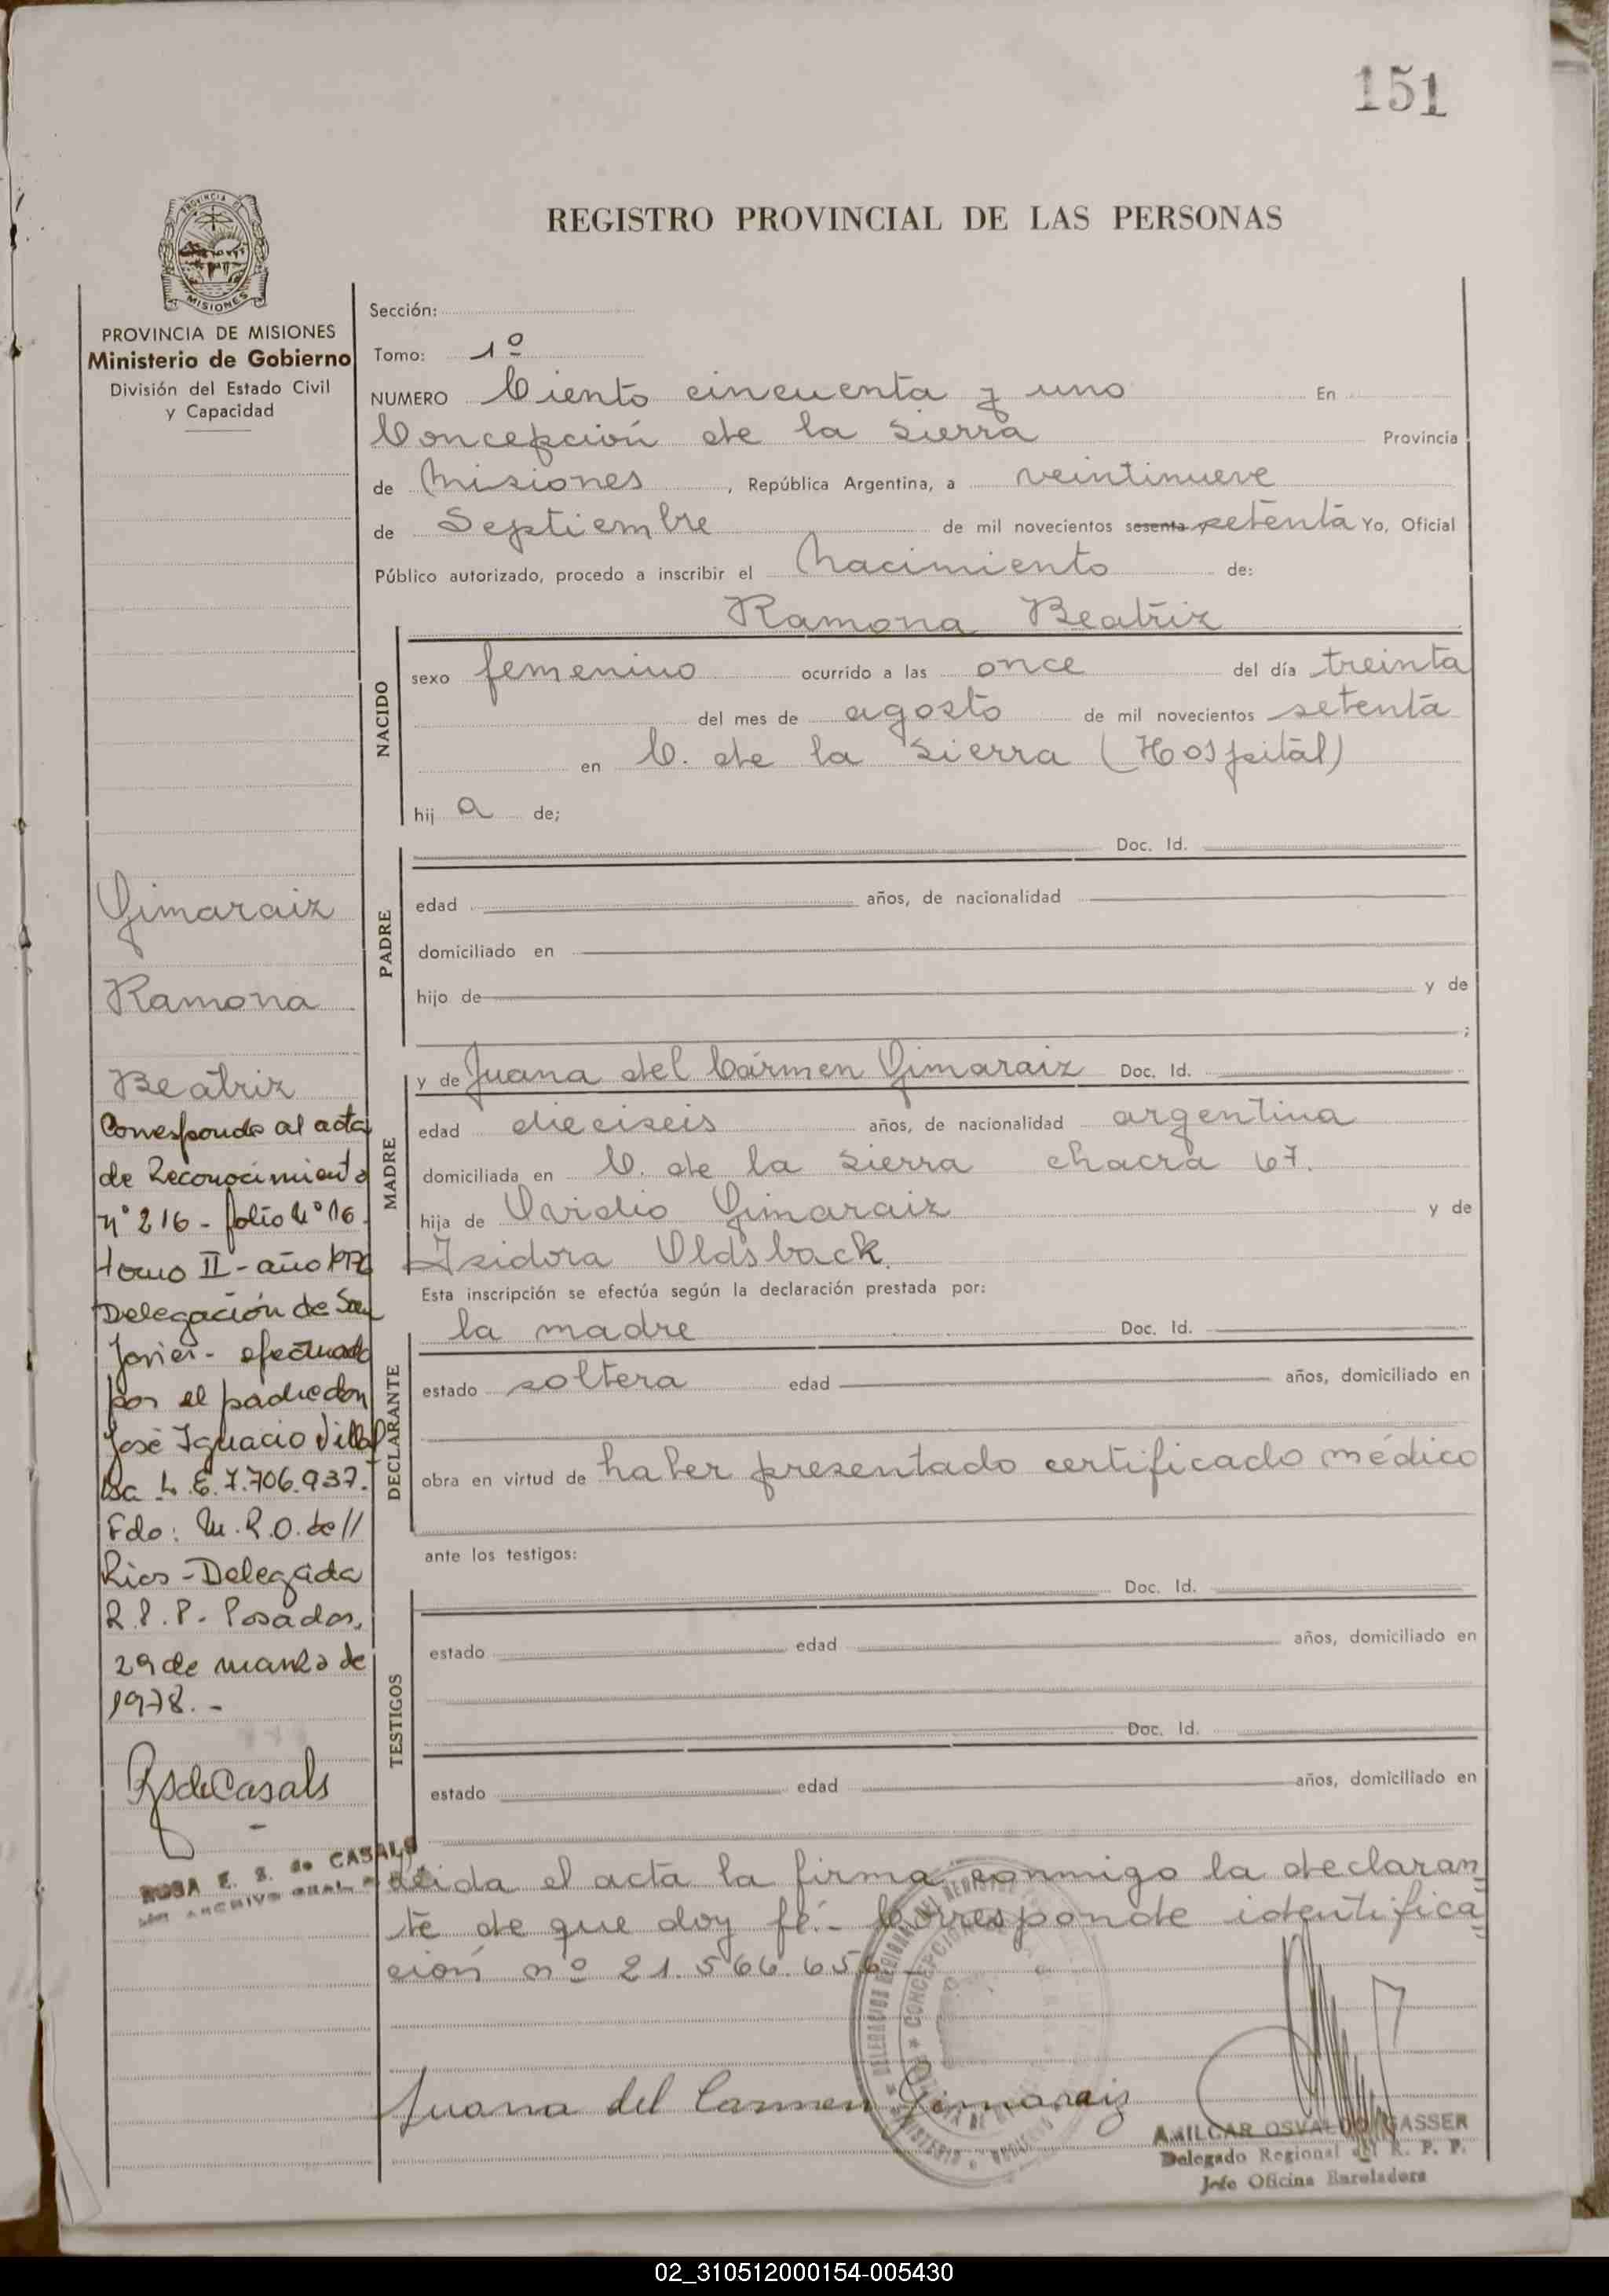 151
REGISTRO PROVINCIAL DE LAS PERSONAS
PROVINCIA DE
MISIONES
PROVINCIA DE MISIONES
Ministerio de Gobierno
División del Estado Civil
y Capacidad
Sección:
Tomo: 1º
NUMERO Ciento cincuenta y uno En
Concepción de la Sierra Provincia
de Misiones, República Argentina, a veintinueve
de Septiembre de mil novecientos sesenta y setenta Yo, Oficial
Público autorizado, procedo a inscribir el Nacimiento de:
Ramona Beatriz
NACIDO
sexo femenino ocurrido a las once del día treinta
del mes de agosto de mil novecientos setenta
en C. de la Sierra (Hospital)
hij a de;
PADRE
Doc. Id.
edad años, de nacionalidad
domiciliado en
hijo de y de
;
MADRE
y de Juana del Cármen Gimaraiz Doc. Id.
edad dieciseis años, de nacionalidad argentina
domiciliada en C. de la Sierra chacra 67.
hija de Ovidio Gimaraiz y de
Isidora Oldsback.
Esta inscripción se efectúa según la declaración prestada por:
DECLARANTE
la madre Doc. Id.
estado soltera edad años, domiciliado en
obra en virtud de haber presentado certificado médico
ante los testigos:
TESTIGOS
Doc. Id.
estado edad años, domiciliado en
Doc. Id.
estado edad años, domiciliado en
Leida el acta la firma conmigo la declaran
te de que doy fé.- Corresponde identifica
ción nº 21.566.656
Juana del Carmen Gimaraiz
AMILCAR OSVALDO GASSER
Delegado Regional del R. P. P.
Jefe Oficina
Gimaraiz
Ramona
Beatriz
Corresponde al acta
de Reconocimiento
nº 216 - folio Nº 16
tomo II - año
Delegación de San
Javier - efectuado
por el padre don
José Ignacio Villal
ba L.E. 7.706.937.-
Fdo: M.R.O. de //
Rios - Delegada
R.P.P. Posadas,
29 de marzo de
1978.-
RSdeCasals
ROSA E. S. de CASALS
ARCHIVO GRAL.
02_310512000154-005430